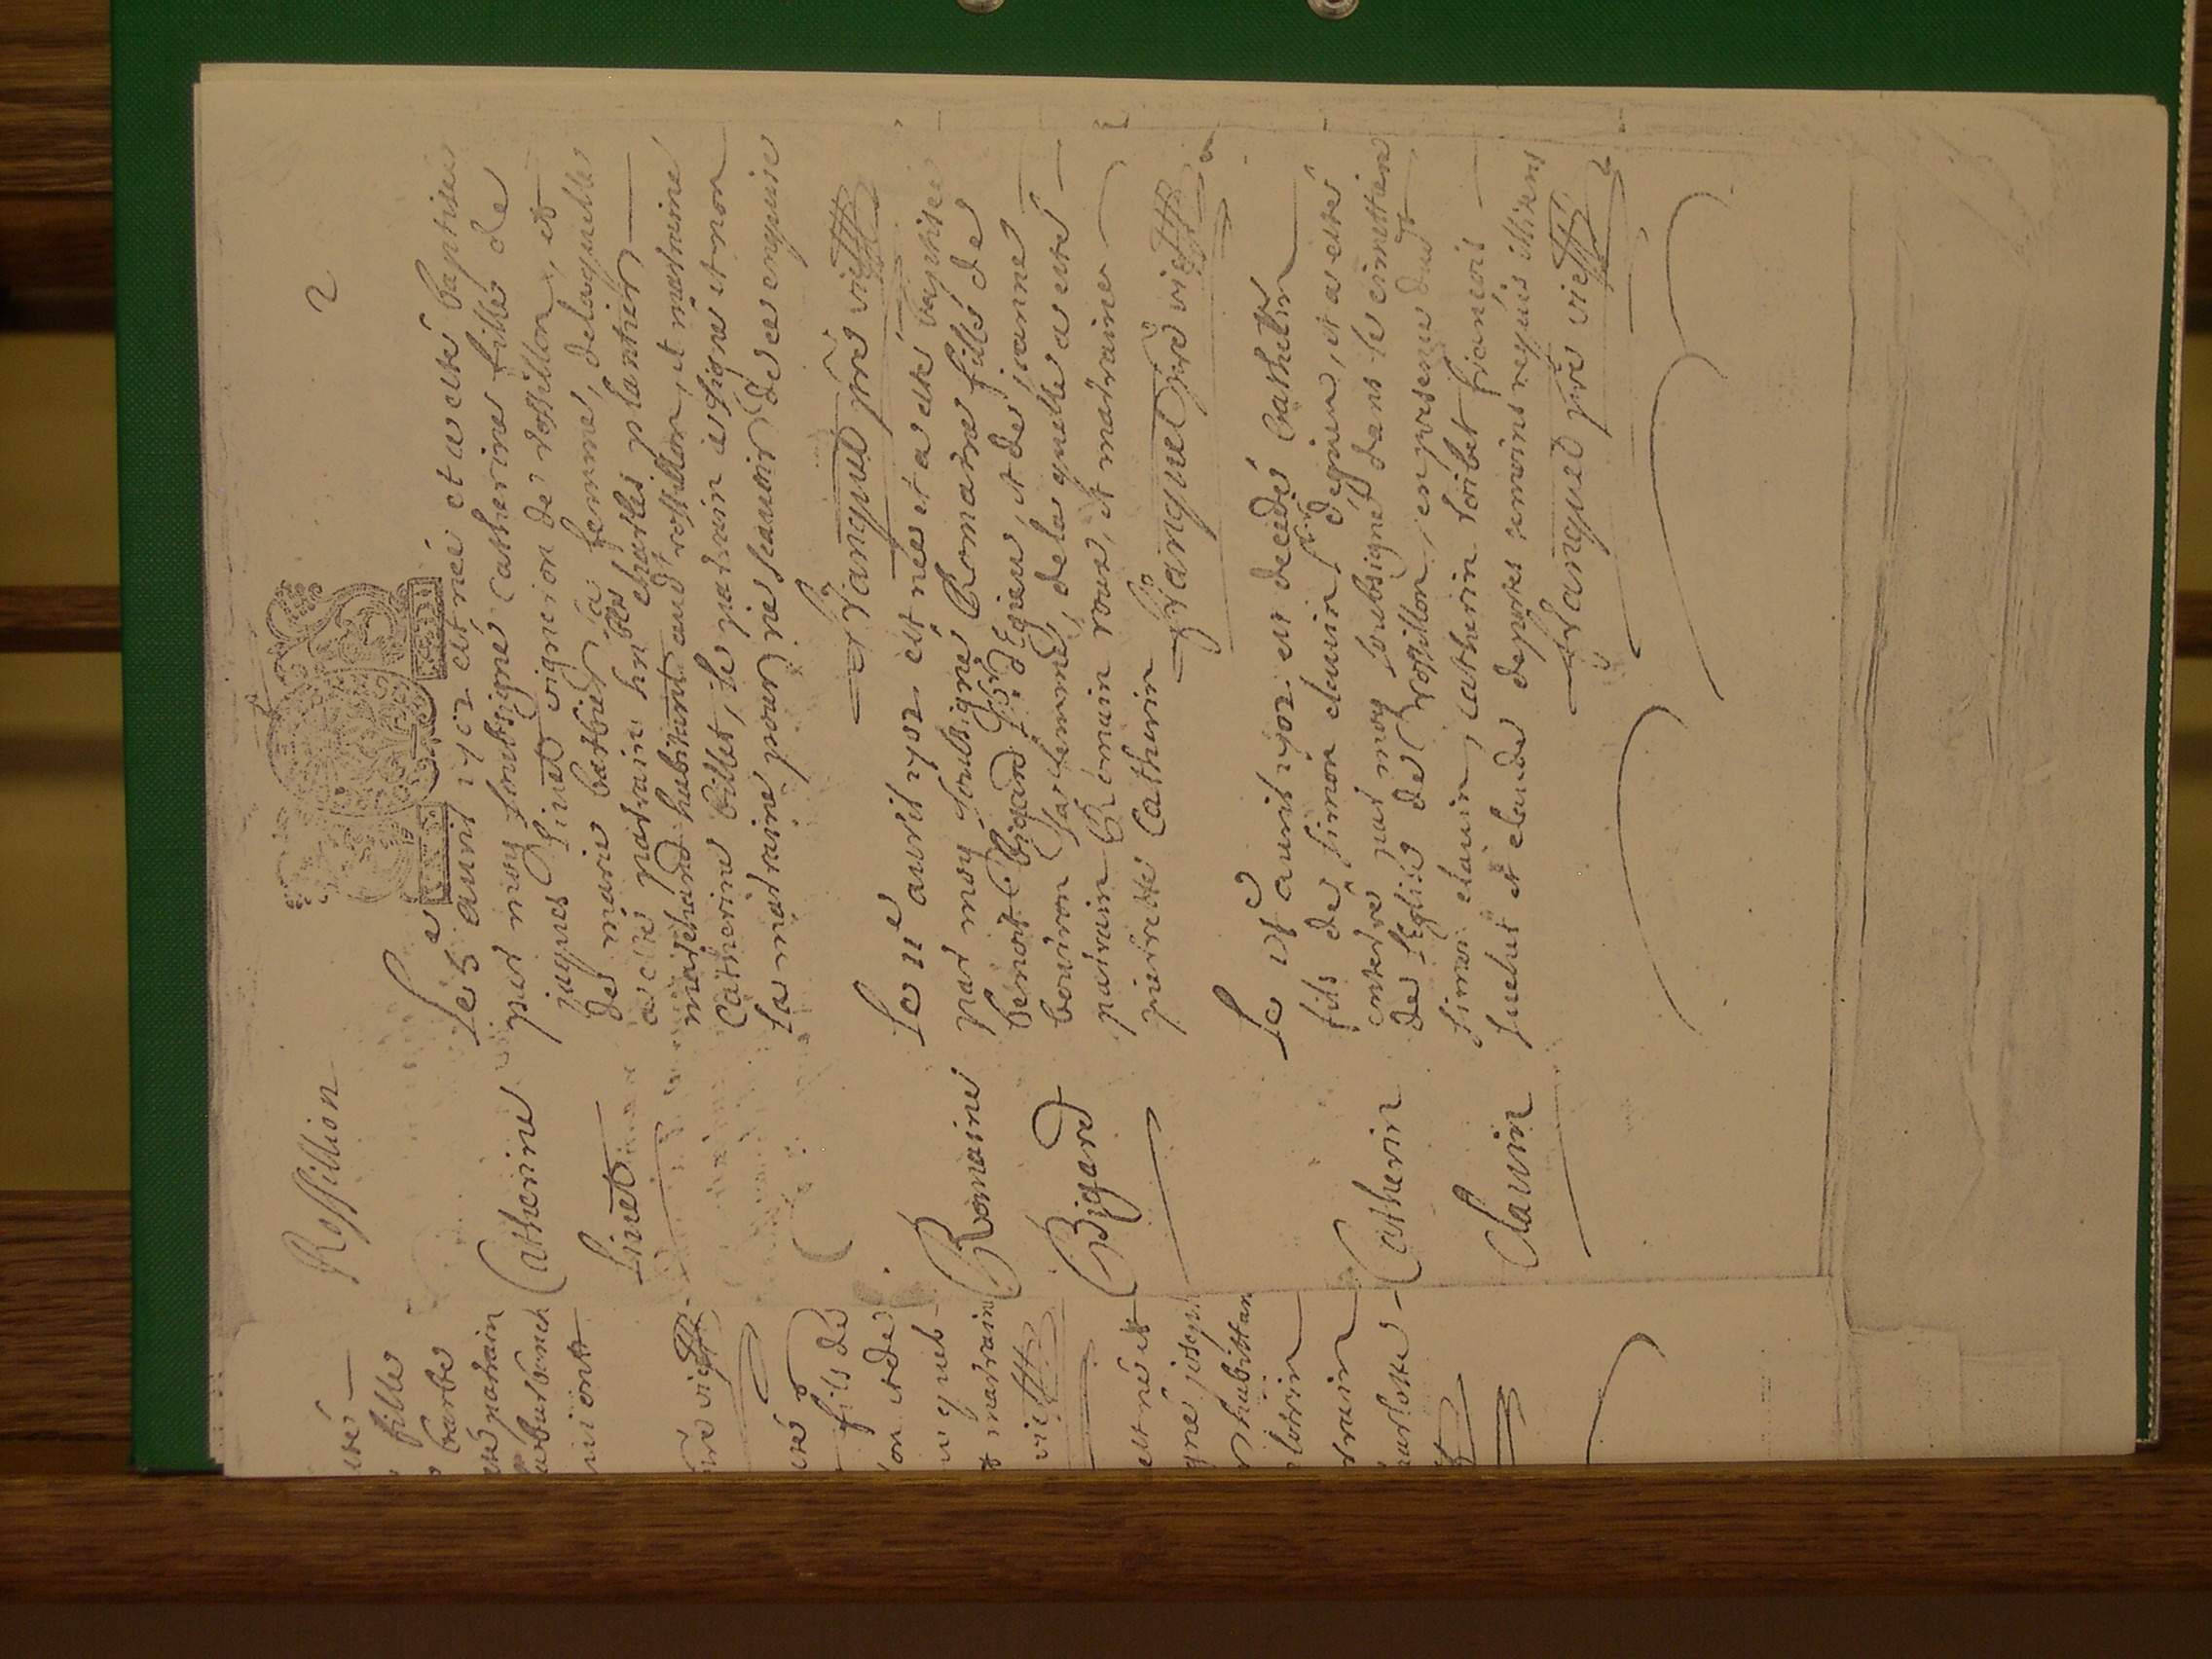 Rossillion
2
Le 5e auril 1702 est née et a esté baptisée
par moy soubsigné Catherine fille de
jaques Sinet vigneron de rossillon, et
de marie barbier sa femme, de laquelle
a esté parrain hn. charles plantier
marchand habitant aud. rossillon, et marraine
Catherine billet, le parrain a signé et non
la marraine pour ne scauoir de ce enquise
Vanquel pre vicre
Catherine
Sinet
Le 11e auril 1702 est née et a esté baptisée
par moy soubsigné Romaine fille de
benoit bigard dEgieu, et de janne
bouuron sa femme, de laquelle a esté
parrain Romain roux, et marraine
pierrette Catherin
Vanquel pre vicre
Romaine
Bigard
Le auril 1702 est decedé Catherin
fils de simon clauin degieu, et a esté
enterré par moy soubsigné dans le cimettiere
de l'Eglise de Rossillon, en presence dud.
simon clauin, Catherin
et claude tesmoins requis illiteres
Vanquel pre vicre
Catherin
Clauin
esté
fille
barbe
esté parrain
vicre
esté
fils de
on et de
quel
et marraine
vicre
est né et
gné joseph
habittan
rrain
harlotte